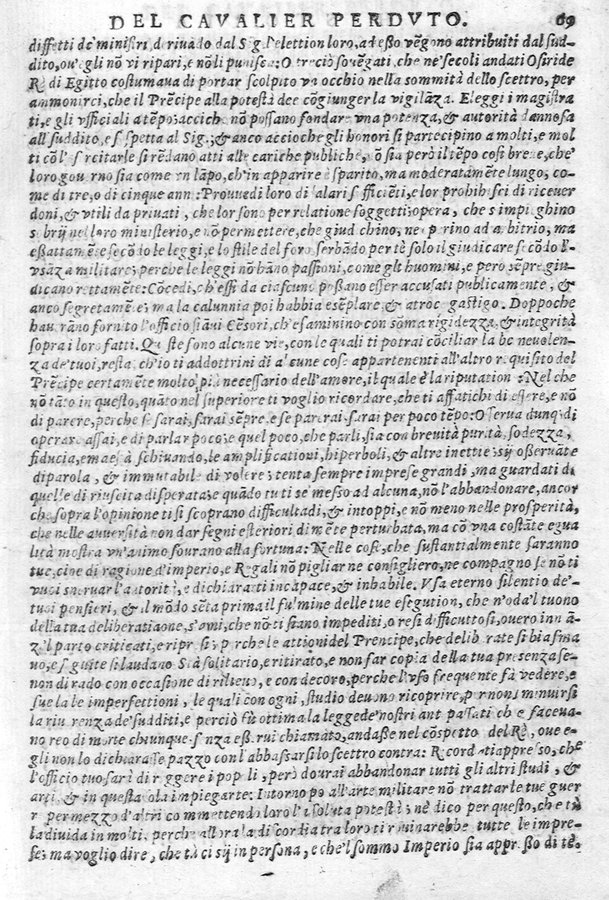 DEL CAVALIER PERDVTO. 69
diffetti de' ministri, derivādo dal Sig. l'elettion loro, ad esso vēgono attribuiti dal sud-
dito, ov'egli nō vi ripari, e nō li punisca: O treciò sovēgati, che ne' secoli andati Osiride
Rè di Egitto costumava di portar scolpito vn occhio nella sommità dello scettro, per
ammonirci, che il Prēcipe alla potestà dee cōgiunger la vigilāza. Eleggi i magistra
ti, e gli vfficiali a tēpo; acciche nō possano fondare vna potenza, & autorità dannosa
all' suddito, e s spetta al Sig.; & anco accioche gli honori si partecipino a molti, e mol
ti cōl' s rcitarle si rēdano atti alle cariche publiche, nō sia però il tēpo così breue, che'
loro gou rno sia come vn lāpo, ch'in apparire è sparito, ma moderatamēte lungo, co-
me di tre, o di cinque ann: Prouuedi loro di salari s fficiēti, e lor prohibisci di riceuer
doni, & vtili da priuati, che lor sono per relatione soggetti; opera, che s impieghino
sobrij nel loro ministerio, e nō permettere, che giud chino, ne operino ad a bitrio, ma
esattamēte secōdo le leggi, e lo stile del foro serbādo per tè solo il giudicare secōdo l'v-
sāza militare; perche le leggi nō hāno passioni, come gli huomini, e però sēpre giu-
dicano rettamēte: Cōcedi, ch'essi da ciascuno possano esser accusati publicamente, &
anco segretamēte; ma la calunnia poi habbia esēplare, & atroce gastigo. Doppo che
hau rāno fornito l'officio siāui Cēsori, ch'esaminino con sōma rigidezza, & integrità
sopra i loro fatti. Qu ste sono alcune vie, con le quali ti potrai cōciliar la be neuolen-
za de' tuoi, resta, ch'io ti addottrini di alcune cose appartenenti all'altro requisito del
Prēcipe certamēte molto più necessario dell'amore, il quale è la riputation: Nel che
nō tāto in questo, quāto nel superiore ti voglio ricordare, che ti affatichi di essere, e nō
di parere, perche se sarai, sarai sēpre, e se parerai sarai per poco tēpo: Osserua dunq; di
operare assai, e di parlar poco; e quel poco, che parli, sia con breuità purità, sodezza,
fiducia, e maestà schiuando, le amplificationi, hiperboli, & altre inettie: sij osseruate
di parola, & immutabile di volere; tenta sempre imprese grandi, ma guardati di
quelle di riuscita disperata; e quādo tu ti se' messo ad alcuna, nō l'abbandonare, ancor
che sopra l'opinione ti si scoprano difficultadi, & intoppi, e nō meno nelle prosperità,
che nelle auuersità non dar segni esteriori di mēte perturbata, ma cō vna costāte egua
lità mostra vn' animo sourano alla fortuna: Nelle cose, che sustantialmente saranno
tue, cioe di ragione d'imperio, e Regali nō pigliarne consigliero, ne compagno se nō ti
vuoi sneruar l'autorità, e dichiararti incapace, & inhabile. Vsa eterno silentio de'
tuoi pensieri, & il mōdo sēta prima il fulmine delle tue esegutioni, che n'oda'l tuono
della tua deliberatiaone, s'ami, che nō ti siano impediti, o resi difficuttosi, ouero inn ā-
zi'l parto criticati, e ripr si; perche le attioni del Prencipe, che delib rate si biasima
uo, es guite si laudano Stà solitario, e ritirato, e non far copia della tua presenza se-
non di rado con occasione di rilieuo, e con decoro, perche l'vso frequente fà vedere, e
sue la le imperfettioni, le quali con ogni studio deuono ricoprire, per non minuirsi
la riu renza de' sudditi, e perciò fù ottima la legge de nostri antipassati ch e faceua-
no reo di morte chiunque s nza esserui chiamato, andasse nel cōspetto del Rè, oue e-
gli non lo dichiarasse pazzo con l'abbassarsi lo scettro contra: Ricordati appresso, che
l'officio tuo sarà di reggere i popoli, però dourai abbandonar tutti gli altri studi, &
arti, & in questa sola impiegarte: Intorno poi all'arte militare nō trattar le tue guer
r per mezzo d'altri commettendo loro l'isoluta potestà; ne dico per questo, che tu
la diuida in molti, perche allora la discordia tra loro ti ruinarebbe tutte le impre-
se; ma voglio dire, che tù ci sij in persona, e che'l sommo Imperio sia appresso di tè.